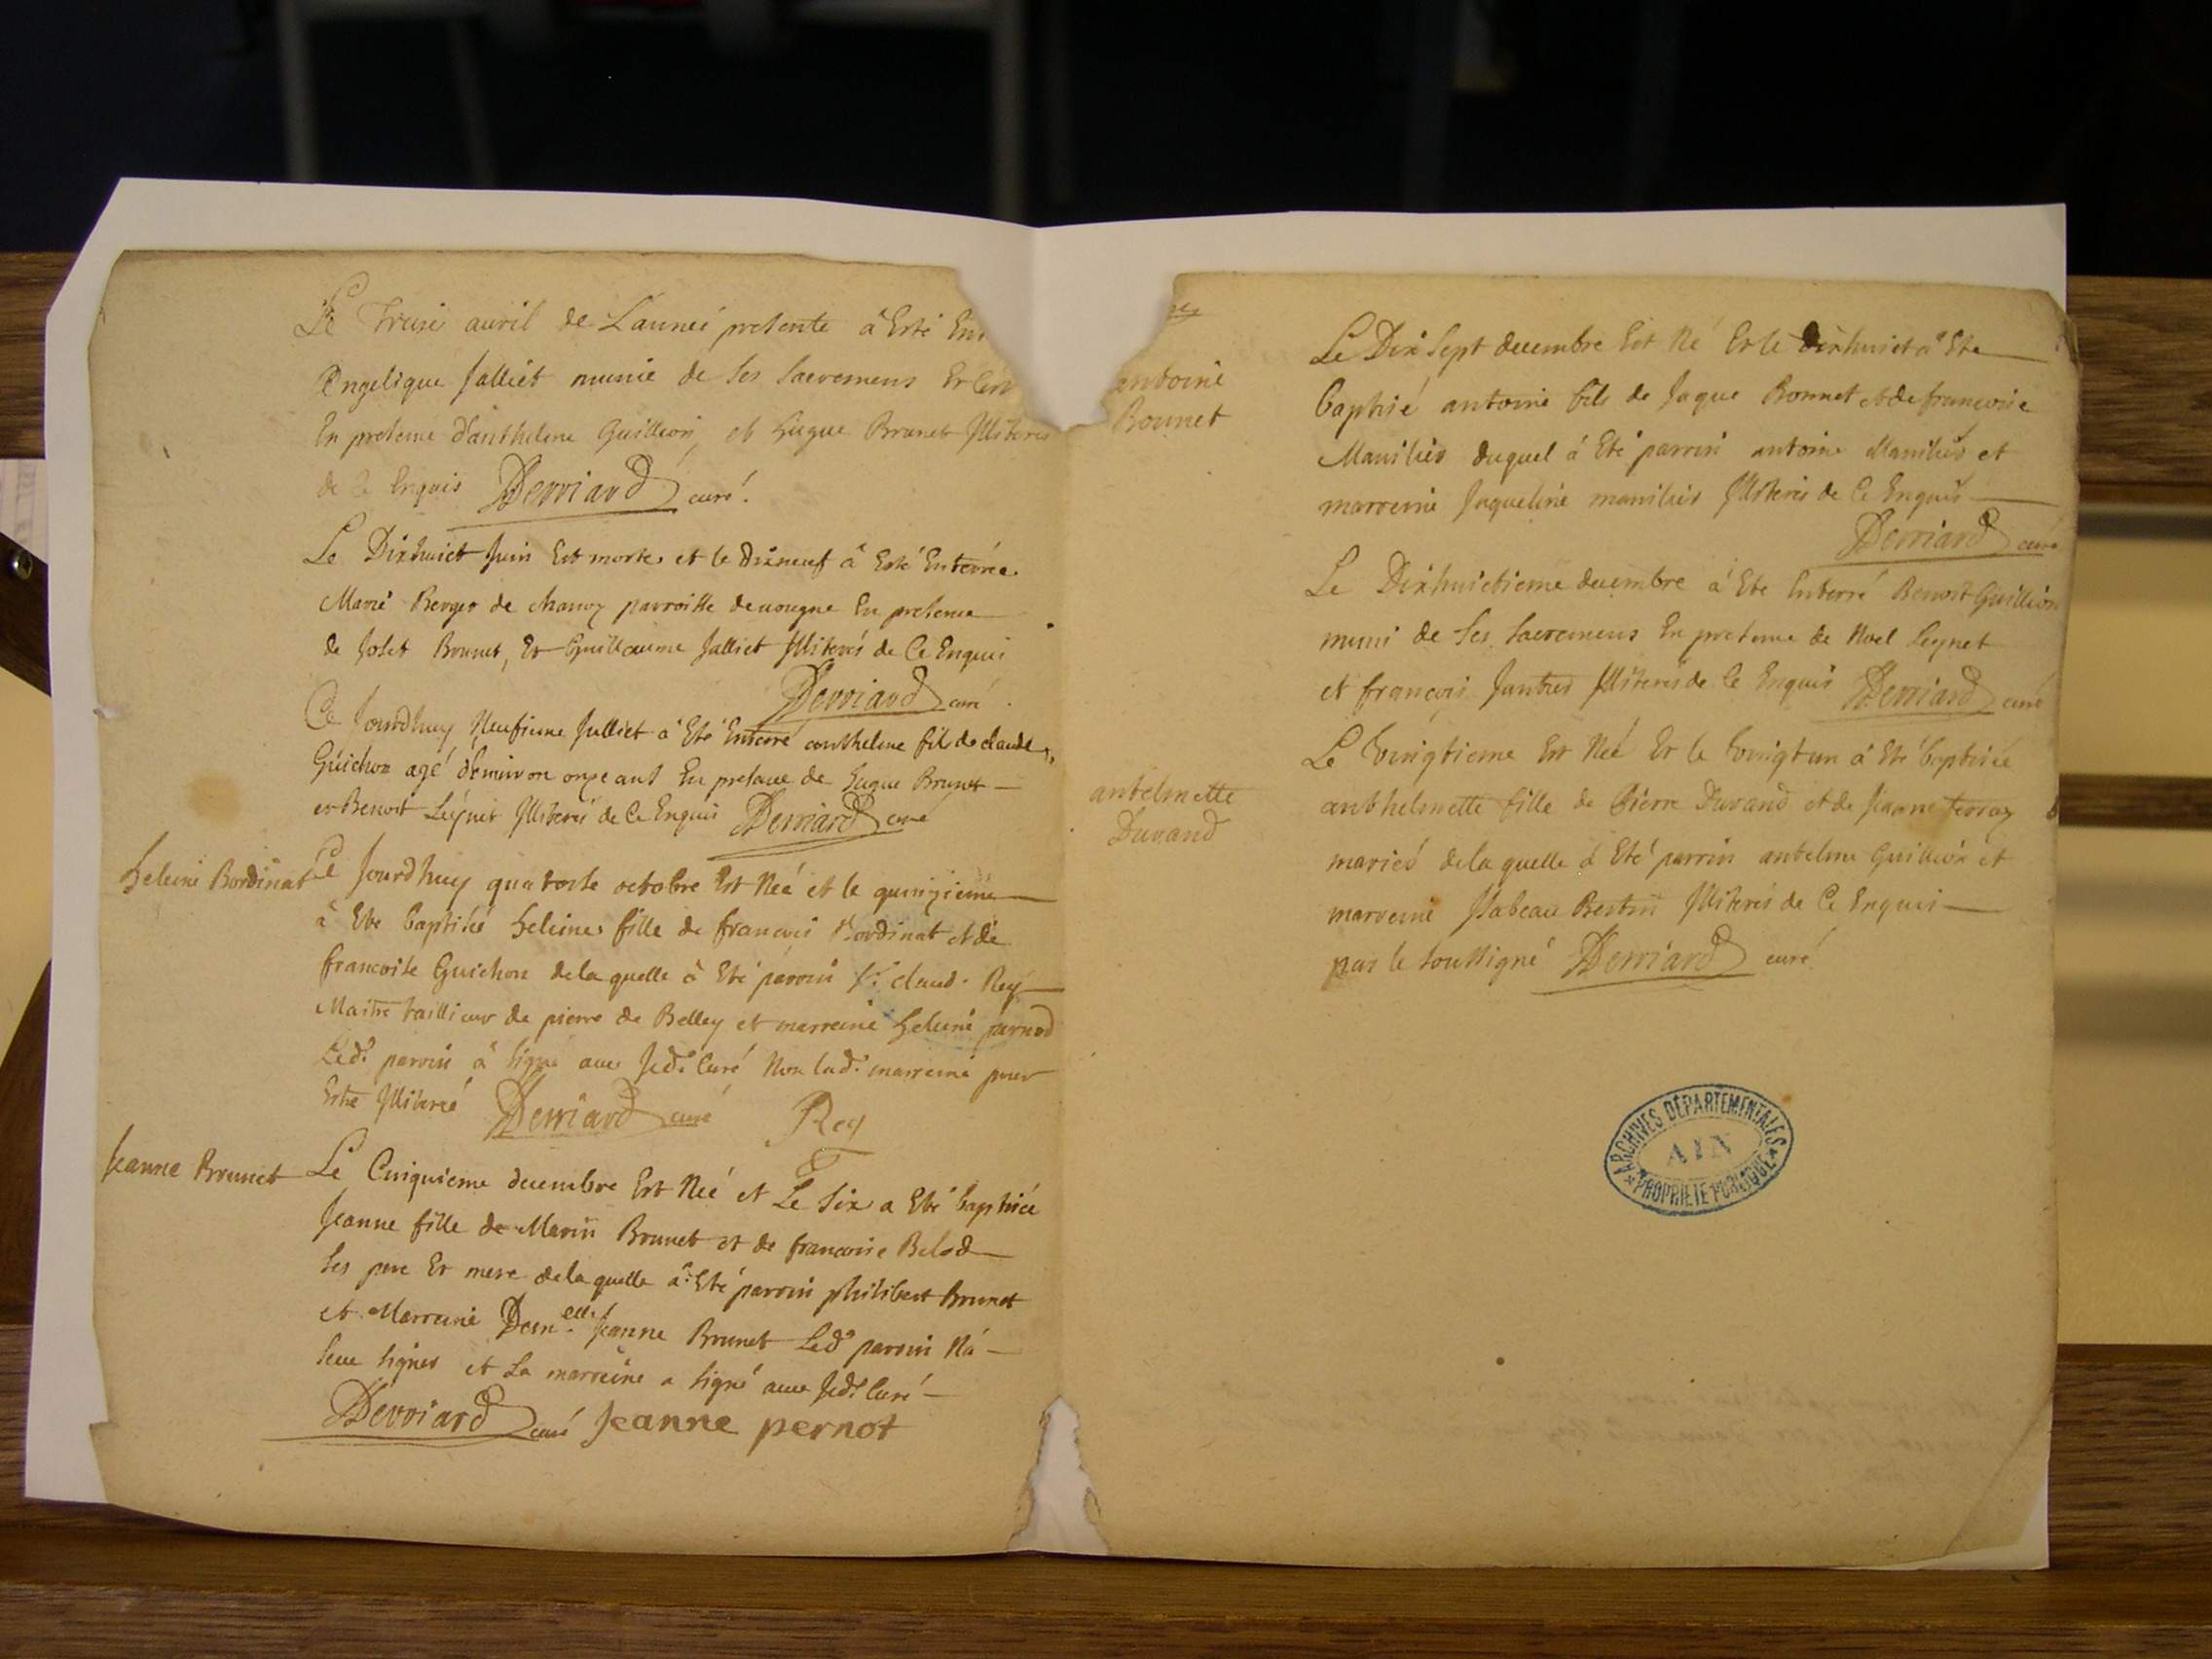 Le Treize avril de L'année presente à Esté
Angelique Julliet munie de ses sacremens Et
En presence d'anthelme Guillion, et hugue Brunet Illiterés
de ce Enquis Derriard curé.
Le Dixhuict Juin Est morte et le dixneuf à Esté Enterrée
Marie Berger de chanoz parroisse de uougne En presence
de Joset Brunet, Et Guillaume Julliet Illiterés de Ce Enquis
Derriard curé
Ce Jourdhuy Neufieme Julliet à Eté Enterré anthelme fils de claude
Guichon agé denuiron onze ans En presence de hugue Brunet
et Benoit Leynet Illiterés de Ce Enquis Derriard curé
heleine Bordinat
Ce Jourdhuy quatorse octobre Est Neé et le quinzieme
à Ete baptisée heleine fille de francois Bordinat et de
francoise Guichon delaquelle à Eté parrin Sr. claud. Rey
Maitre taillieur de pierre de Belley et marreine heleine pernod
Led. parrin à signé auec Jed. Curé Non lad. marreine pour
Estre Illiterée Derriard curé Rey
Jeanne Brunet
Le Cinquieme decembre Est Neé et Le six a Eté baptisée
Jeanne fille de Marin Brunet et de francoise Belod
ses pere Et mere delaquelle à Eté parrin philibert Brunet
et Marreine Demelle. Jeanne Brunet Led. parrin Nà
sceu signer et La marreine a signé auec Jed. Curé
Derriard curé Jeanne pernot
antoine
Bonnet
Le Dix sept decembre Est Né Et le dixhuict à Ete
baptisé antoine fils de Jaque Bonnet et de francoise
Manilier duquel à Eté parrin antoine Manilier et
marreine Jaqueline manilier Illiterés de Ce Enquis
Derriard curé
Le Dixhuictieme decembre à Ete Enterré Benoit Guillion
muni de ses sacremens En presence de Noel Leynet
et francois Illiterés de Ce Enquis Derriard curé
antelmette
Durand
Le Vingtieme Est Neé Et le Vingtun à Eté baptisée
anthelmette fille de Pierre Durand et de Jeanne terray
mariés delaquelle à Eté parrin antelme Guillion et
marreine Isabeau Bertin Illiterés de Ce Enquis
par le soussigné Derriard curé
ARCHIVES DÉPARTEMENTALES
AIN
PROPRIETE PUBLIQUE